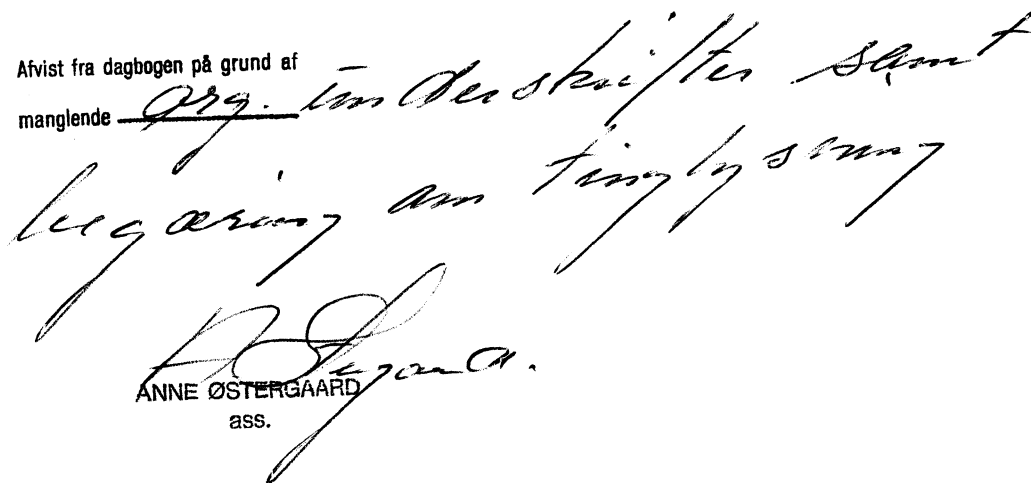 Afvist fra dagbogen på grund af
manglende org. underskrifter samt
begæring om tinglysning
ANNE ØSTERGAARD
ass.